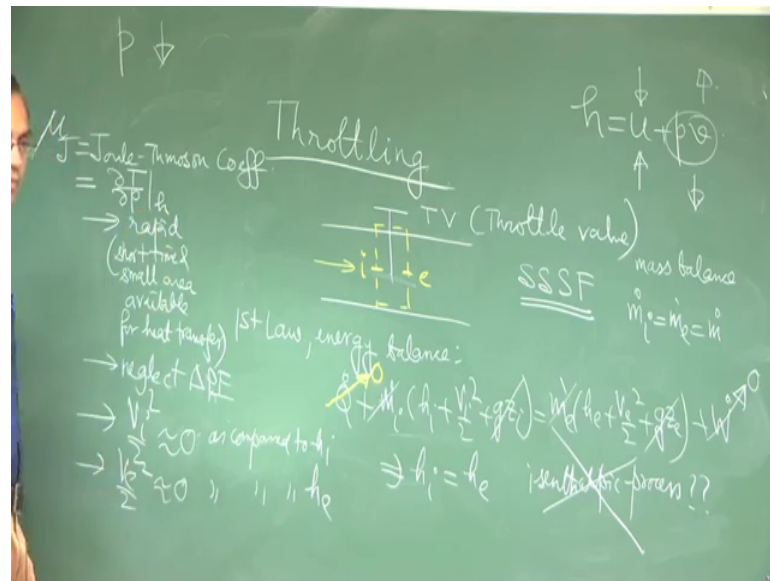 p ↓
Throttling
h = u + pv
μ_J = Joule-Thmoson Coeff.
= ∂T/∂p|_h
→ rapid
(short time &
small area
available
for heat transfer)
→ neglect ΔPE
→ V_i²/2 ≈ 0 as compared to h_i
→ V_e²/2 ≈ 0 " " " h_e
TV (Throttle valve)
i e
SSSF
mass balance
ṁ_i = ṁ_e = ṁ
1st Law, energy balance:
Q̇ + ṁ_i (h_i + V_i²/2 + gz_i) = ṁ_e (h_e + V_e²/2 + gz_e) + Ẇ
0 0
⇒ h_i = h_e isenthalpic process??